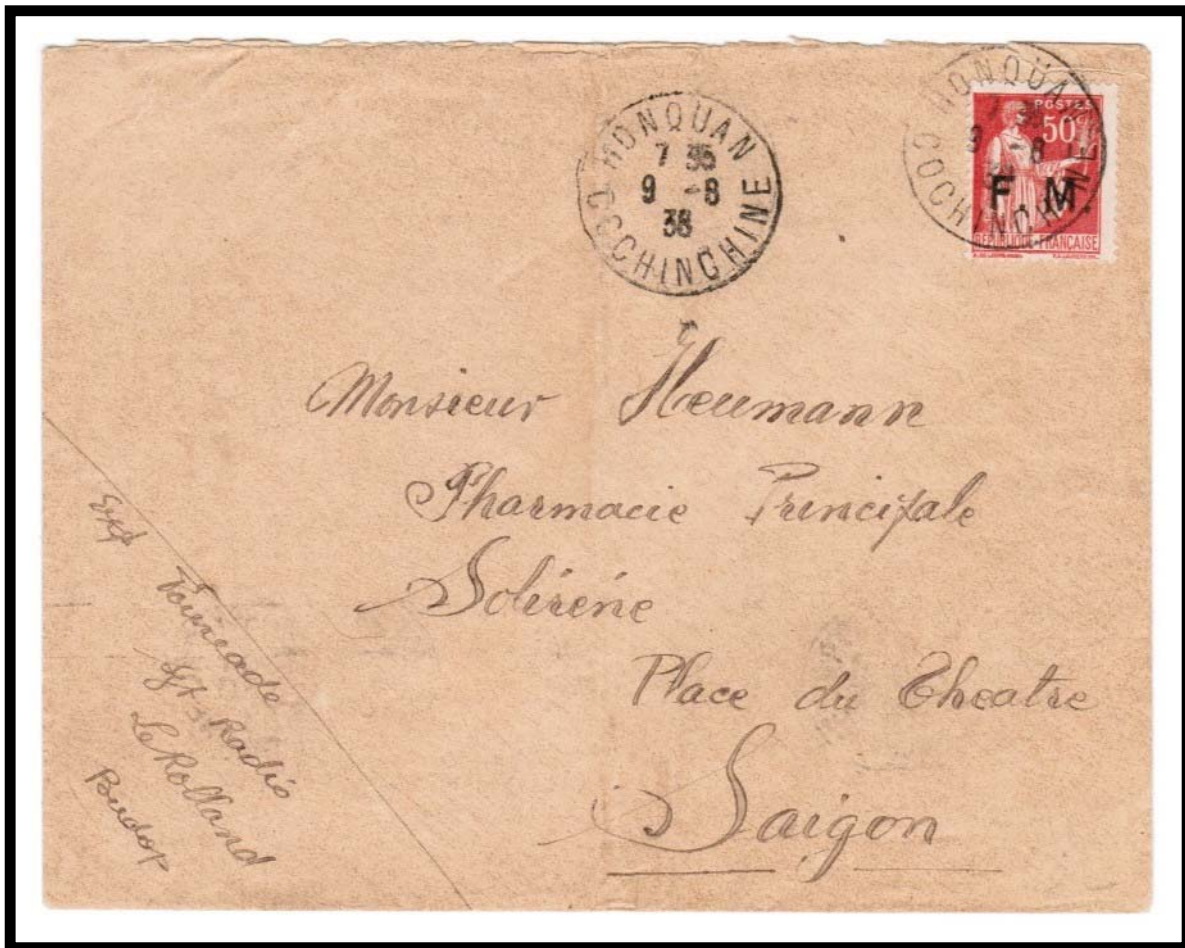 HONQUAN
7 35
9 -8
38
COCHINCHINE
HONQUAN
9 -8
COCHINCHINE
POSTES
50c
F. M.
REPUBLIQUE FRANÇAISE
Monsieur Heumann
Pharmacie Principale
Solirène
Place du Theatre
Saigon
Exp
Sgt Radio
Le Rolland
Budop